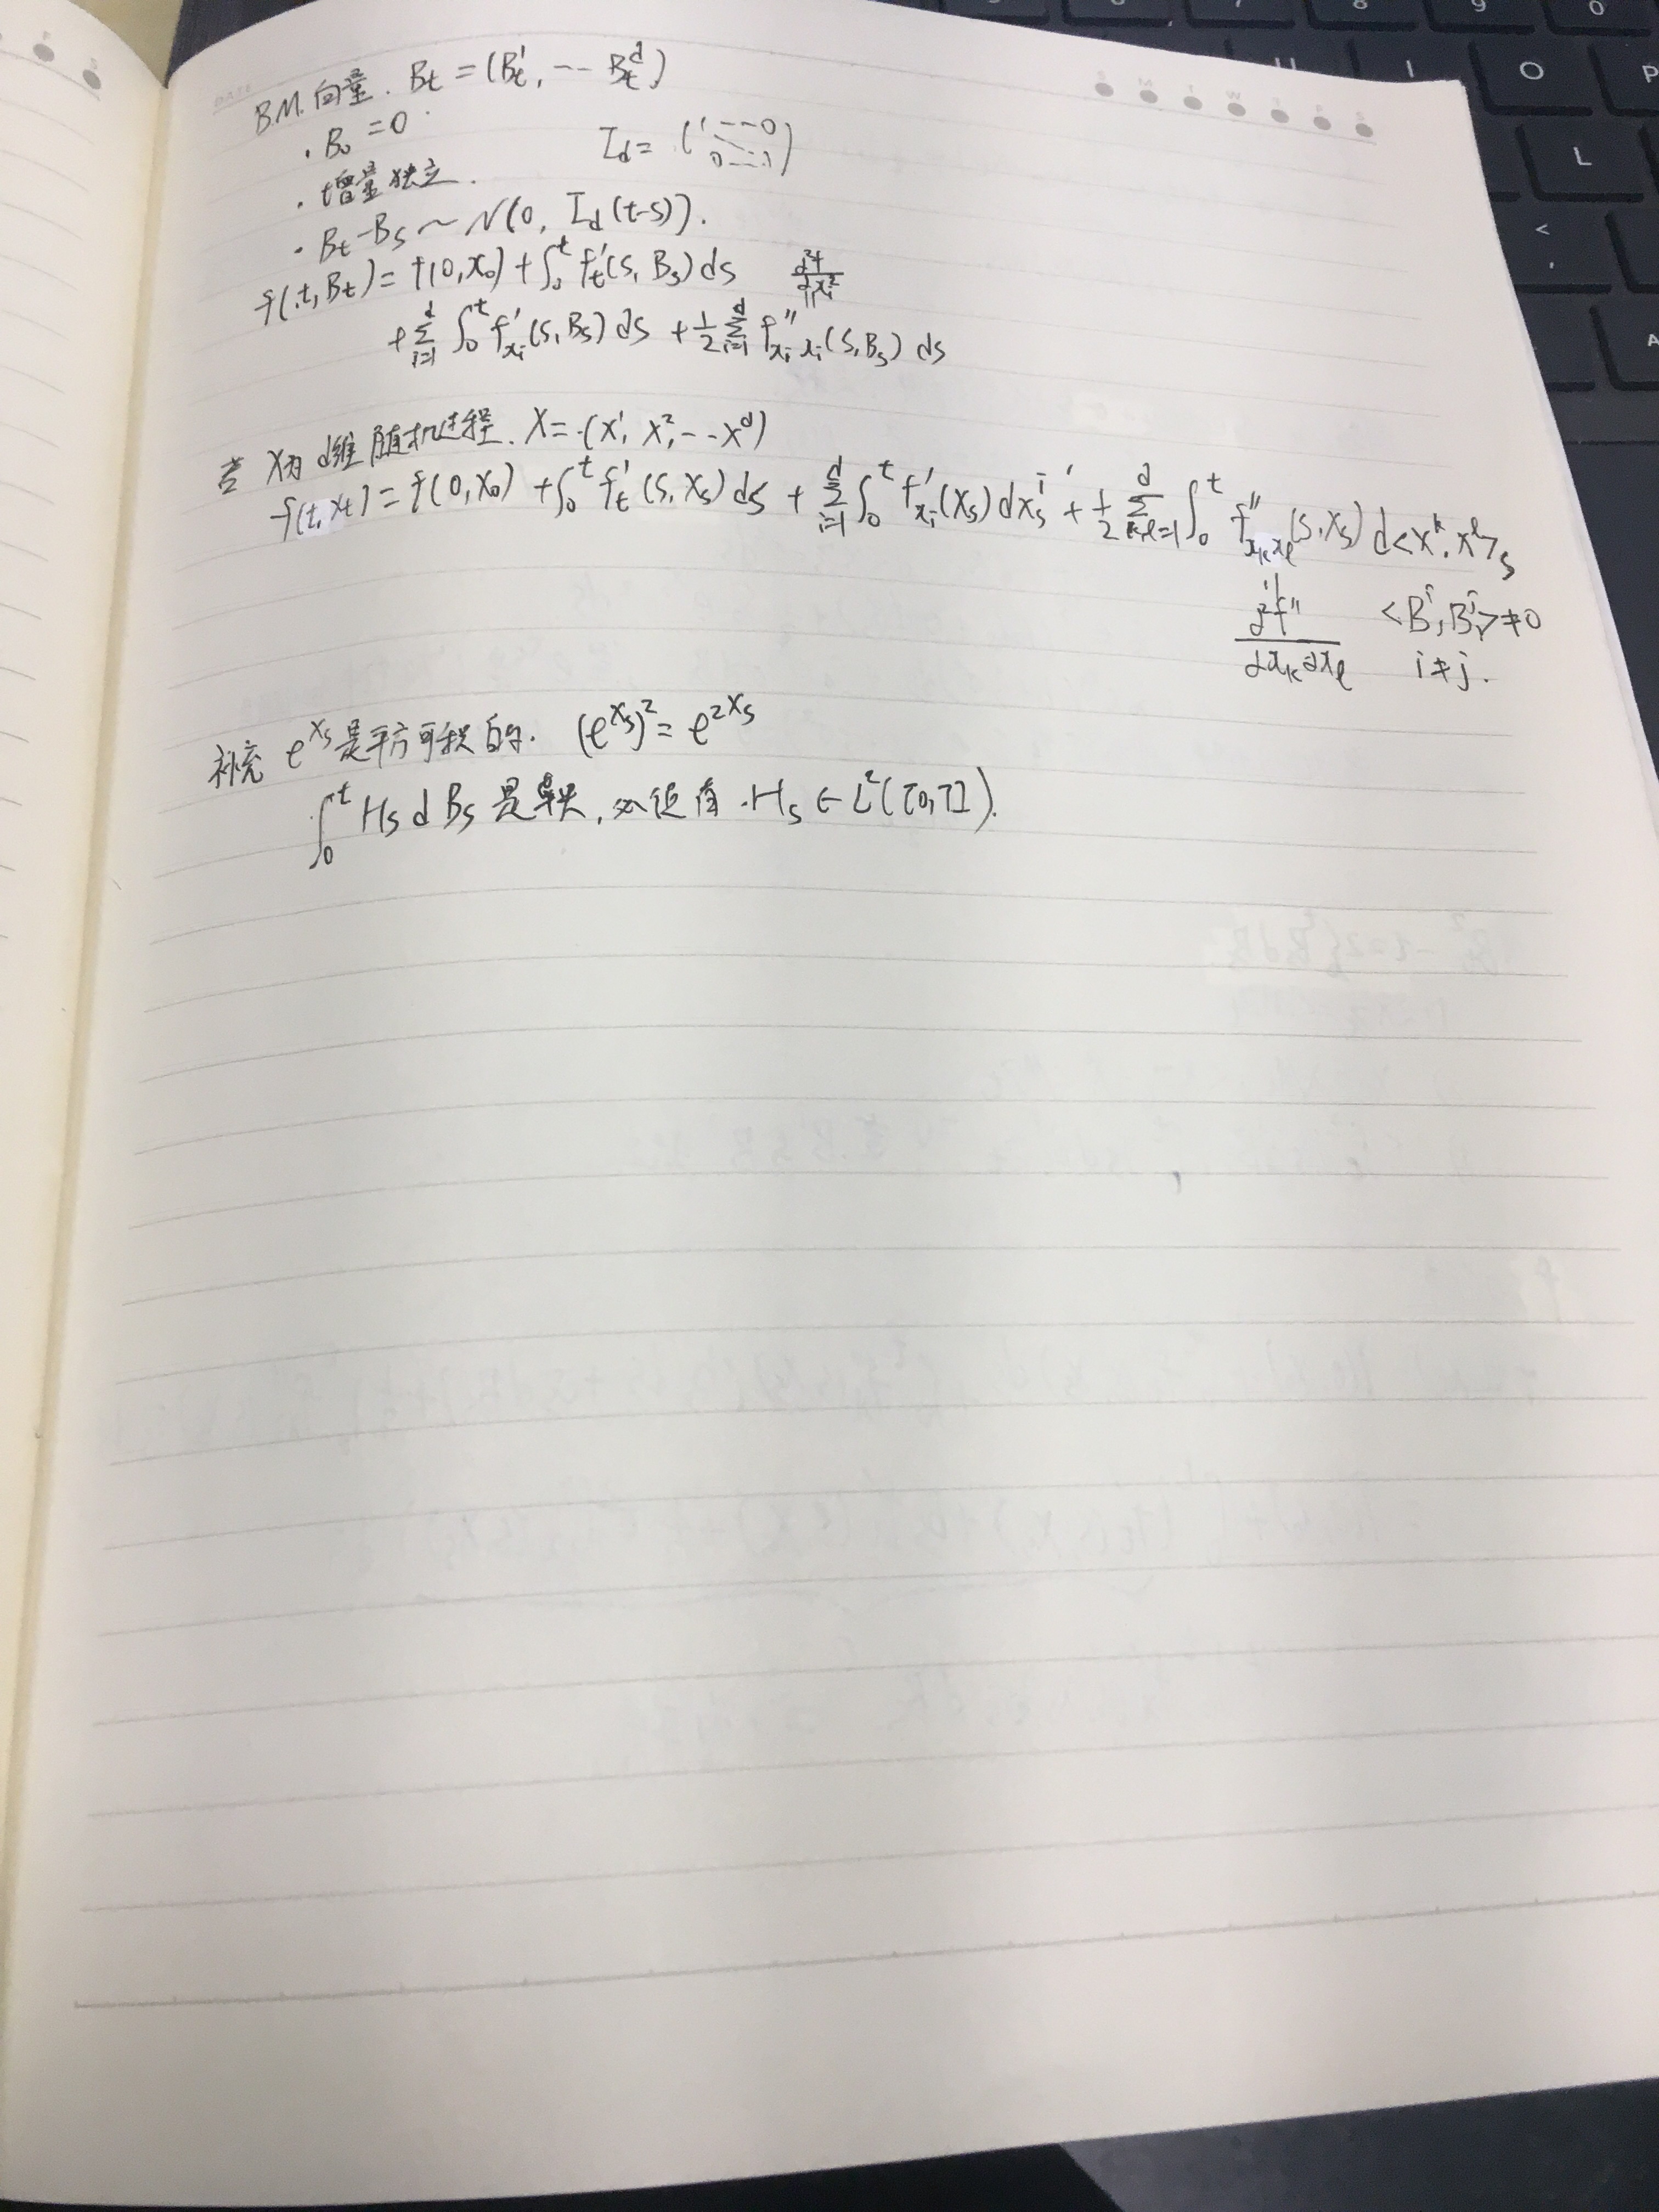 B.M.向量. Bt = (Bt¹, -- Btᵈ)
· B₀ = 0
Id = (1 -- 0
0 -- 1)
· 增量独立.
· Bt-Bs ~ N(0, Id(t-s)).
f(t,Bt) = f(0,x₀) + ∫₀ᵗ f't(s, Bs) ds
d²f/dxi²
+ Σᵢ₌₁ᵈ ∫₀ᵗ f'xi(s,Bs) ds + ½ Σᵢ₌₁ᵈ f''xi xi(s,Bs) ds
若 X为 d维 随机过程. X = (X¹, X², -- Xᵈ)
f(t,Xt) = f(0,X₀) + ∫₀ᵗ f't(s,Xs) ds + Σᵢ₌₁ᵈ ∫₀ᵗ f'xi(Xs) dXsⁱ + ½ Σk,l=1ᵈ ∫₀ᵗ f''xkxl(s,Xs) d<Xᵏ, Xˡ>s
∂²f''/∂xk∂xl
<Bⁱ, Bʲ> ≠ 0
i ≠ j.
补充 e^Xs 是平方可积的. (e^Xs)² = e^2Xs
∫₀ᵗ Hs dBs 是鞅, 必须有 Hs ∈ L²([0,T]).